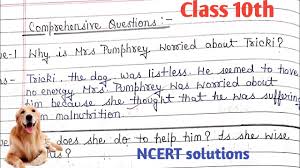 Class 10th
Comprehensive Questions:-
e-1 Why is Mrs Pumphrey worried about Tricki?
s- Tricki, the dog was listless. He seemed to have
no energy. Mrs Pumphrey was worried about
him because she thought that he was suffering
m malnutrition.
does she do to help him? Is she wise
NCERT solutions